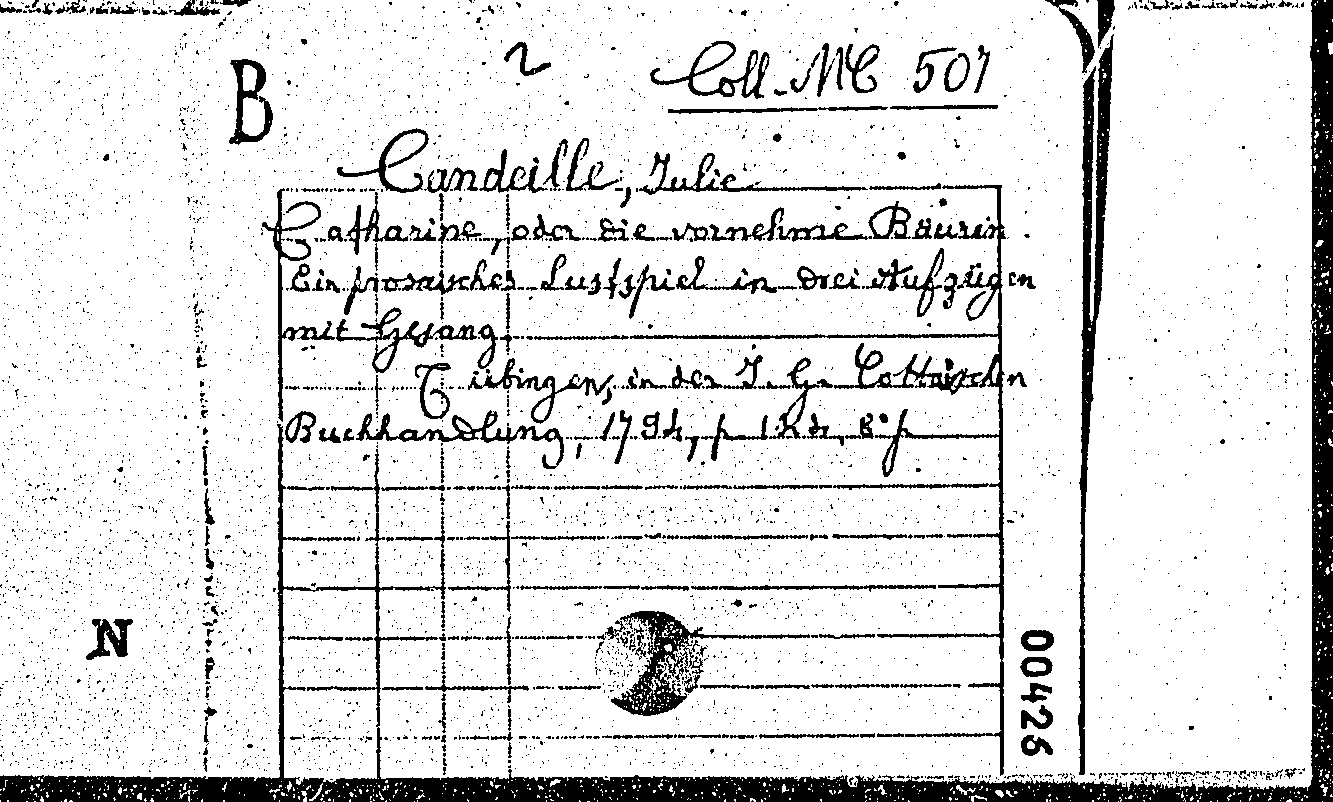 B
Coll. MC 507
Candeille, Julie
Catharine, oder die vornehme Bäurin.
Ein prosaisches Lustspiel in drei Aufzügen
mit Gesang
Tübingen, in der J. G. Cottaischen
Buchhandlung, 1794, p. 124, 8° p
N
00426